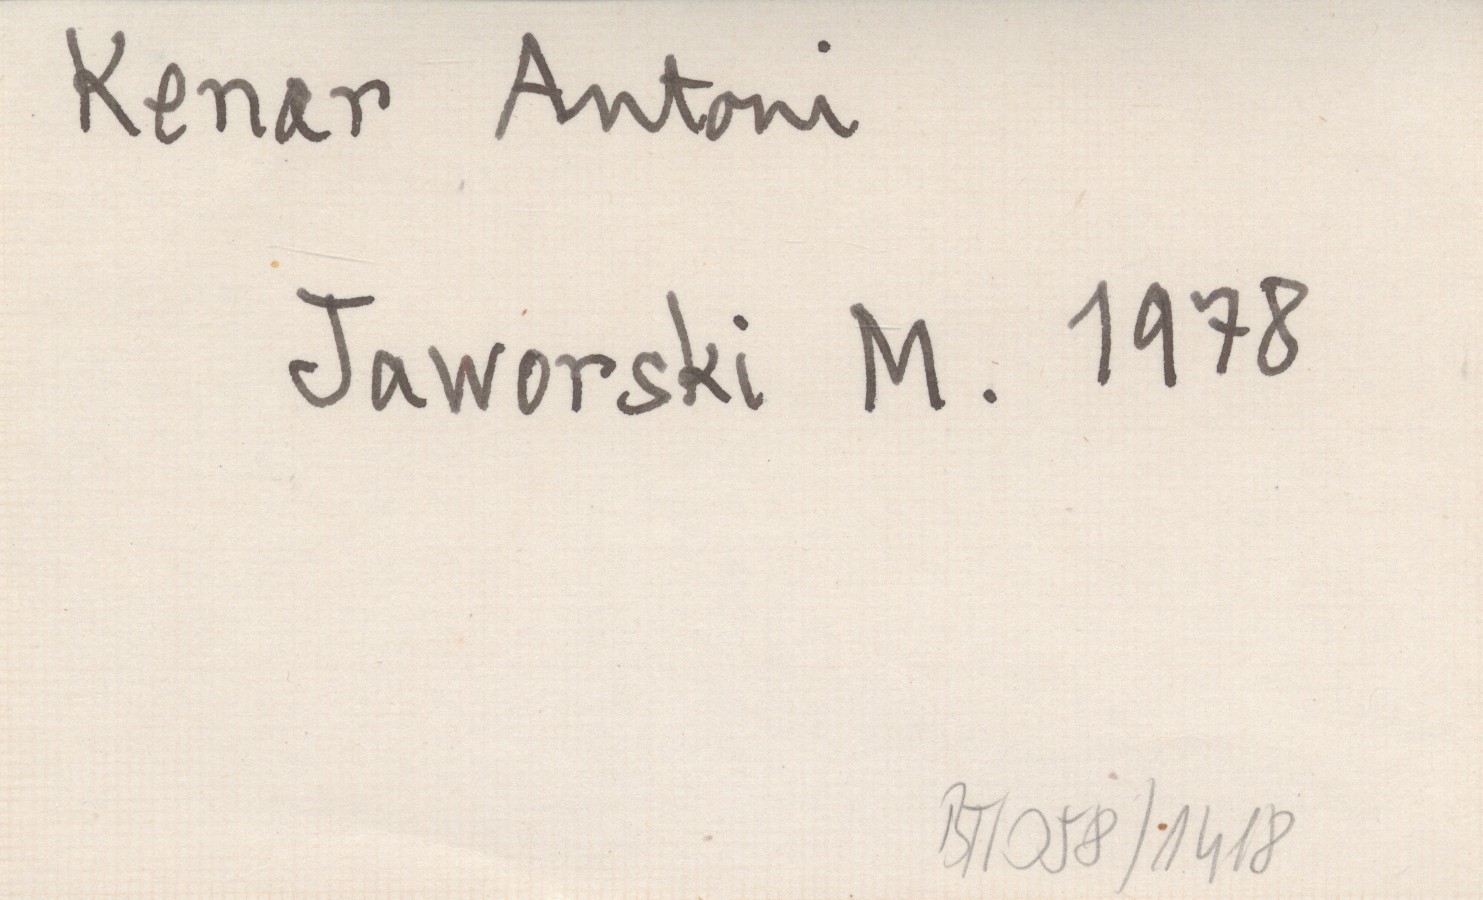 Kenar Antoni
Jaworski M. 1978
BT/058/1418